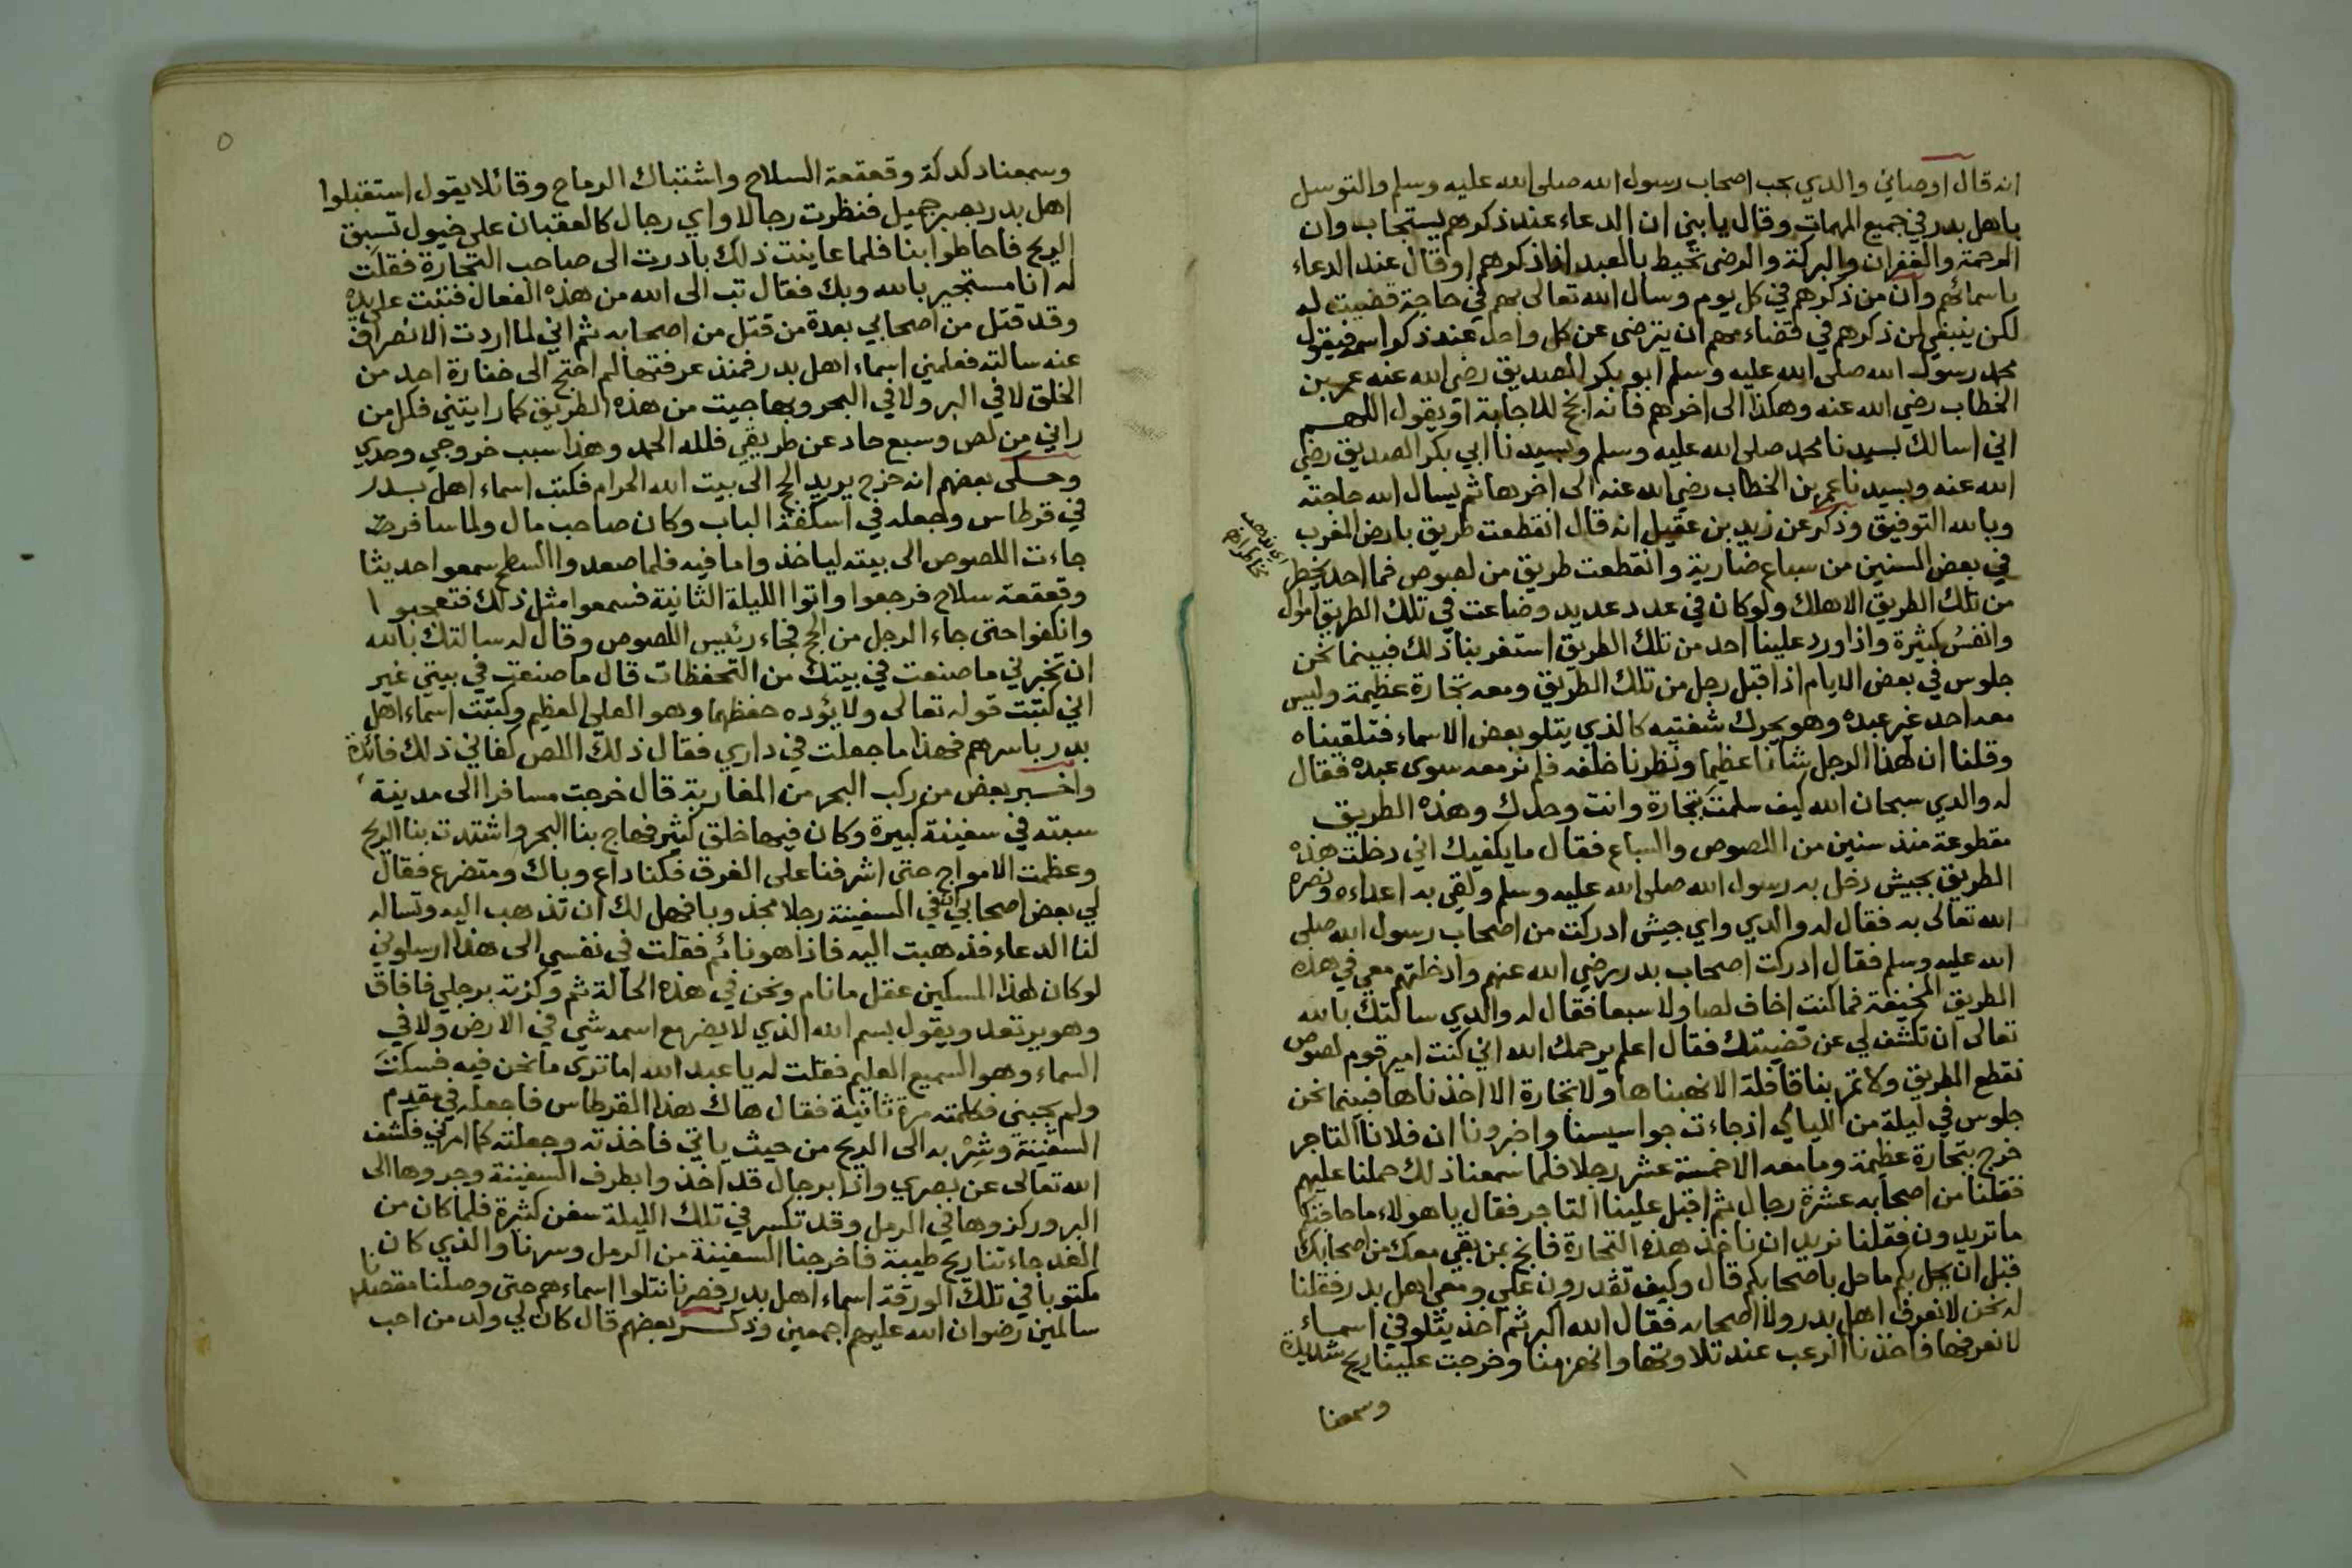 انه قال اوصاني والدي بحب اصحاب رسول الله صلى الله عليه وسلم والتوسل
باهل بدر في جميع المهمات وقال يا بني ان الدعاء عند ذكرهم يستجاب وان
الرحمة والغفران والبركة والرضى تحيط بالعبد اذا ذكرهم او قال عند الدعاء
باسمائهم وان من ذكرهم في كل يوم وسال الله تعالى بهم في حاجة قضيت له
لكن ينبغي لمن ذكرهم في قضاء مهم ان يترضى عن كل واحد عند ذكر اسمه فيقول
محمد رسول الله صلى الله عليه وسلم ابو بكر الصديق رضي الله عنه عمر بن
الخطاب رضي الله عنه وهكذا الى اخرهم فانه انجح للاجابة او يقول اللهم
اني اسالك بسيدنا محمد صلى الله عليه وسلم وبسيدنا ابي بكر الصديق رضي
الله عنه وبسيدنا عمر بن الخطاب رضي الله عنه الى اخرها ثم يسال الله حاجته
وبالله التوفيق وذكر عن زيد بن عقيل انه قال انقطعت طريق بارض المغرب
في بعض السنين من سباع ضارية وانقطعت طريق من لصوص فما احد يخطر
من تلك الطريق الا هلك ولو كان في عدد عديد وضاعت في تلك الطريق اموال
وانفس كثيرة واذا ورد علينا احد من تلك الطريق استغربنا ذلك فبينما نحن
جلوس في بعض الايام اذ اقبل رجل من تلك الطريق ومعه تجارة عظيمة وليس
معه احد غير عبده وهو يحرك شفتيه كالذي يتلو بعض الاسماء فتلقيناه
وقلنا ان لهذا الرجل شانا عظيما ونظرنا خلفه فلم نر معه سوى عبده فقال
له والدي سبحان الله كيف سلمت بتجارة وانت وحدك وهذه الطريق
مقطوعة منذ سنين من اللصوص والسباع فقال ما يكفيك اني دخلت هذه
الطريق بجيش دخل به رسول الله صلى الله عليه وسلم ولقي به اعداءه ونصره
الله تعالى به فقال له والدي واي جيش ادركت من اصحاب رسول الله صلى
الله عليه وسلم فقال ادركت اصحاب بدر رضي الله عنهم وادخلتهم معي في هذه
الطريق المخيفة فما كنت اخاف لصا ولا سبعا فقال له والدي سالتك بالله
تعالى ان تكشف لي عن قضيتك فقال اعلم يرحمك الله اني كنت امير قوم لصوص
نقطع الطريق ولا تمر بنا قافلة الا نهبناها ولا تجارة الا اخذناها فبينما نحن
جلوس في ليلة من الليالي اذ جاءت جواسيسنا واخبرونا ان فلانا التاجر
خرج بتجارة عظيمة وما معه الا خمسة عشر رجلا فلما سمعنا ذلك حملنا عليهم
فقتلنا من اصحابه عشرة رجال ثم اقبل علينا التاجر فقال يا هولاء ما حاجتكم
ما تريدون فقلنا نريد ان ناخذ هذه التجارة فانج بمن بقي معك من اصحابك
قبل ان يحل بكم ما حل باصحابكم قال وكيف تقدرون علي ومعي اهل بدر فقلنا
له نحن لا نعرف اهل بدر ولا اصحابه فقال الله اكبر ثم اخذ يتلو في اسماء
لا نعرفها فاخذنا الرعب عند تلاوتها وانهزمنا وخرجت علينا ريح شديدة
وسمعنا
وسمعنا دكدكة وقعقعة السلاح واشتباك الرماح وقائلا يقول استقبلوا
اهل بدر بصبر جميل فنظرت رجالا واي رجال كالعقبان على خيول تسبق
الريح فاحاطوا بنا فلما عاينت ذلك بادرت الى صاحب التجارة فقلت
له انا مستجير بالله وبك فقال تب الى الله من هذه الفعال فتبت على يده
وقد قتل من اصحابي بعدة من قتل من اصحابه ثم اني لما اردت الانصراف
عنه سالته فعلمني اسماء اهل بدر فمنذ عرفتها لم احتج الى خفارة احد من
الخلق لا في البر ولا في البحر وبها جيت من هذه الطريق كما رايتني فكل من
راني من لص وسبع حاد عن طريقي فلله الحمد وهذا سبب خروجي وحدي
وحكى بعضهم انه خرج يريد الحج الى بيت الله الحرام فكتب اسماء اهل بدر
في قرطاس وجعله في اسكفة الباب وكان صاحب مال ولما سافر
جاءت اللصوص الى بيته لياخذوا ما فيه فلما صعدوا السطح سمعوا حديثا
وقعقعة سلاح فرجعوا واتوا الليلة الثانية فسمعوا مثل ذلك فتعجبوا
وانكفوا حتى جاء الرجل من الحج فجاء رئيس اللصوص وقال له سالتك بالله
ان تخبرني ما صنعت في بيتك من التحفظات قال ما صنعت في بيتي غير
اني كتبت قوله تعالى ولا يؤده حفظهما وهو العلي العظيم وكتبت اسماء اهل
بدر باسرهم فهذا ما جعلت في داري فقال ذلك اللص كفاني ذلك فائدة
واخبر بعض من ركب البحر من المغاربة قال خرجت مسافرا الى مدينة
سبته في سفينة كبيرة وكان فيها خلق كثير فهاج بنا البحر واشتدت بنا الريح
وعظمت الامواج حتى اشرفنا على الغرق فكنا داع وباك ومتضرع فقال
لي بعض اصحابي ان في السفينة رجلا مجذوبا فهل لك ان تذهب اليه وتساله
لنا الدعاء فذهبت اليه فاذا هو نائم فقلت في نفسي الى هذا ارسلوني
لو كان لهذا المسكين عقل ما نام ونحن في هذه الحالة ثم وكزته برجلي فافاق
وهو يرتعد ويقول بسم الله الذي لا يضر مع اسمه شي في الارض ولا في
السماء وهو السميع العليم فقلت له يا عبد الله اما ترى ما نحن فيه فسكت
ولم يجبني فكلمته مرة ثانية فقال هاك هذا القرطاس فاجعله في مقدم
السفينة وشر به الى الريح من حيث ياتي فاخذته وجعلته كما امرني فكشف
الله تعالى عن بصري واذا برجال قد اخذوا بطرف السفينة وجروها الى
البر وركزوها في الرمل وقد تكسر في تلك الليلة سفن كثيرة فلما كان من
الغد جاءتنا ريح طيبة فاخرجنا السفينة من الرمل وسرنا والذي كان
مكتوبا في تلك الورقة اسماء اهل بدر فصرنا نتلوا اسماءهم حتى وصلنا مقصدنا
سالمين رضوان الله عليهم اجمعين وذكر بعضهم قال كان لي ولد من احب